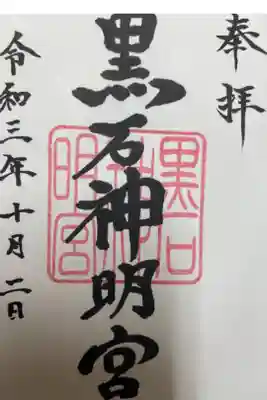 奉拝
黒石神明宮
黒石
神
明宮
令和三年十月二日